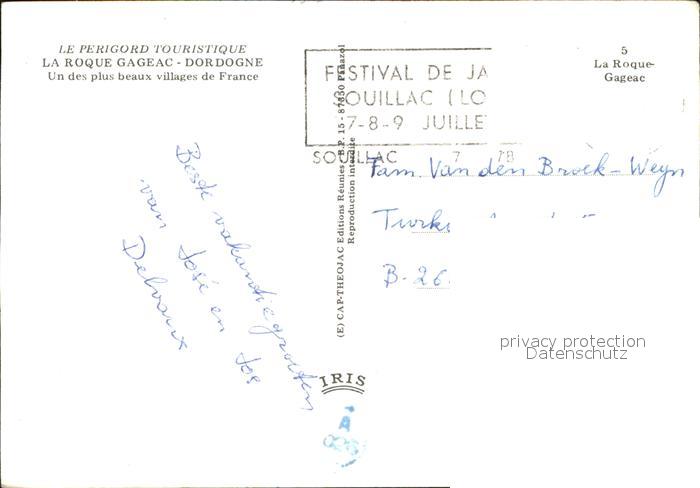 LE PERIGORD TOURISTIQUE
LA ROQUE GAGEAC - DORDOGNE
Un des plus beaux villages de France
Beste vakantiegroeten
van José en Jos
Delvaux
(E) CAP-THEOJAC Editions Réunies - B.P. 15 - 87350 Panazol
Reproduction interdite
IRIS
FESTIVAL DE JA
SOUILLAC (LO
7-8-9 JUILLE
SOUILLAC 7 78
5
La Roque-
Gageac
Fam. Van den Broek - Weyn
B-26
privacy protection
Datenschutz
A